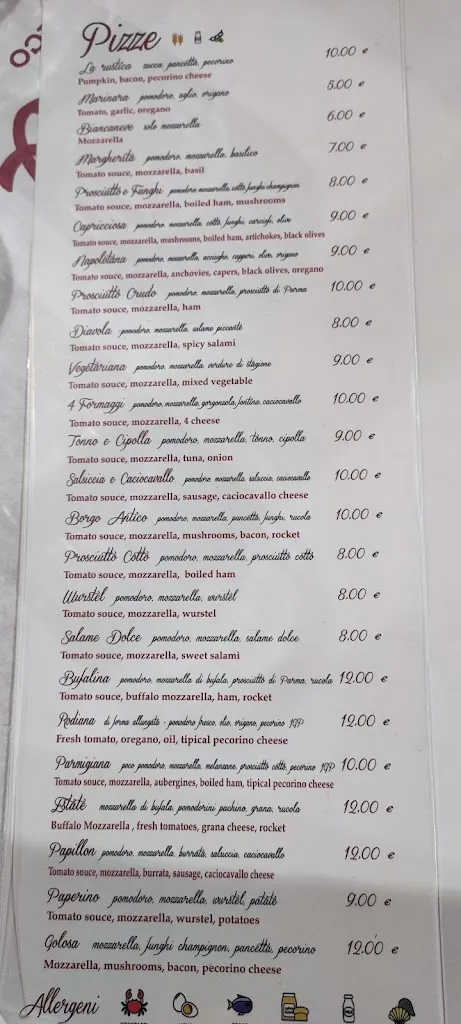 Pizze
La rustica zucca, pancetta, pecorino 10.00 €
Pumpkin, bacon, pecorino cheese
Marinara pomodoro, aglio, origano 5.00 €
Tomato, garlic, oregano
Biancaneve solo mozzarella 6.00 €
Mozzarella
Margherita pomodoro, mozzarella, basilico 7.00 €
Tomato souce, mozzarella, basil
Prosciutto e Funghi pomodoro, mozzarella, cotto, funghi champignon 8.00 €
Tomato souce, mozzarella, boiled ham, mushrooms
Capricciosa pomodoro, mozzarella, cotto, funghi, carciofi, olive 9.00 €
Tomato souce, mozzarella, mushrooms, boiled ham, artichokes, black olives
Napoletana pomodoro, mozzarella, acciughe, capperi, olive, origano 9.00 €
Tomato souce, mozzarella, anchovies, capers, black olives, oregano
Prosciutto Crudo pomodoro, mozzarella, prosciutto di Parma 10.00 €
Tomato souce, mozzarella, ham
Diavola pomodoro, mozzarella, salame piccante 8.00 €
Tomato souce, mozzarella, spicy salami
Vegetariana pomodoro, mozzarella, verdure di stagione 9.00 €
Tomato souce, mozzarella, mixed vegetable
4 Formaggi pomodoro, mozzarella, gorgonzola, fontina, caciocavallo 10.00 €
Tomato souce, mozzarella, 4 cheese
Tonno e Cipolla pomodoro, mozzarella, tonno, cipolla 9.00 €
Tomato souce, mozzarella, tuna, onion
Salsiccia e Caciocavallo pomodoro, mozzarella, salsiccia, caciocavallo 10.00 €
Tomato souce, mozzarella, sausage, caciocavallo cheese
Borgo Antico pomodoro, mozzarella, pancetta, funghi, rucola 10.00 €
Tomato souce, mozzarella, mushrooms, bacon, rocket
Prosciutto Cotto pomodoro, mozzarella, prosciutto cotto 8.00 €
Tomato souce, mozzarella, boiled ham
Wurstel pomodoro, mozzarella, wurstel 8.00 €
Tomato souce, mozzarella, wurstel
Salame Dolce pomodoro, mozzarella, salame dolce 8.00 €
Tomato souce, mozzarella, sweet salami
Bufalina pomodoro, mozzarella di bufala, prosciutto di Parma, rucola 12.00 €
Tomato souce, buffalo mozzarella, ham, rocket
Rodiana di forma allungata - pomodoro fresco, olio, origano, pecorino IGP 12.00 €
Fresh tomato, oregano, oil, tipical pecorino cheese
Parmigiana poco pomodoro, mozzarella, melanzane, prosciutto cotto, pecorino IGP 10.00 €
Tomato souce, mozzarella, aubergines, boiled ham, tipical pecorino cheese
Estate mozzarella di bufala, pomodorini pachino, grana, rucola 12.00 €
Buffalo Mozzarella , fresh tomatoes, grana cheese, rocket
Papillon pomodoro, mozzarella, burrata, salsiccia, caciocavallo 12.00 €
Tomato souce, mozzarella, burrata, sausage, caciocavallo cheese
Paperino pomodoro, mozzarella, wurstel, patate 9.00 €
Tomato souce, mozzarella, wurstel, potatoes
Golosa mozzarella, funghi champignon, pancetta, pecorino 12.00 €
Mozzarella, mushrooms, bacon, pecorino cheese
Allergeni